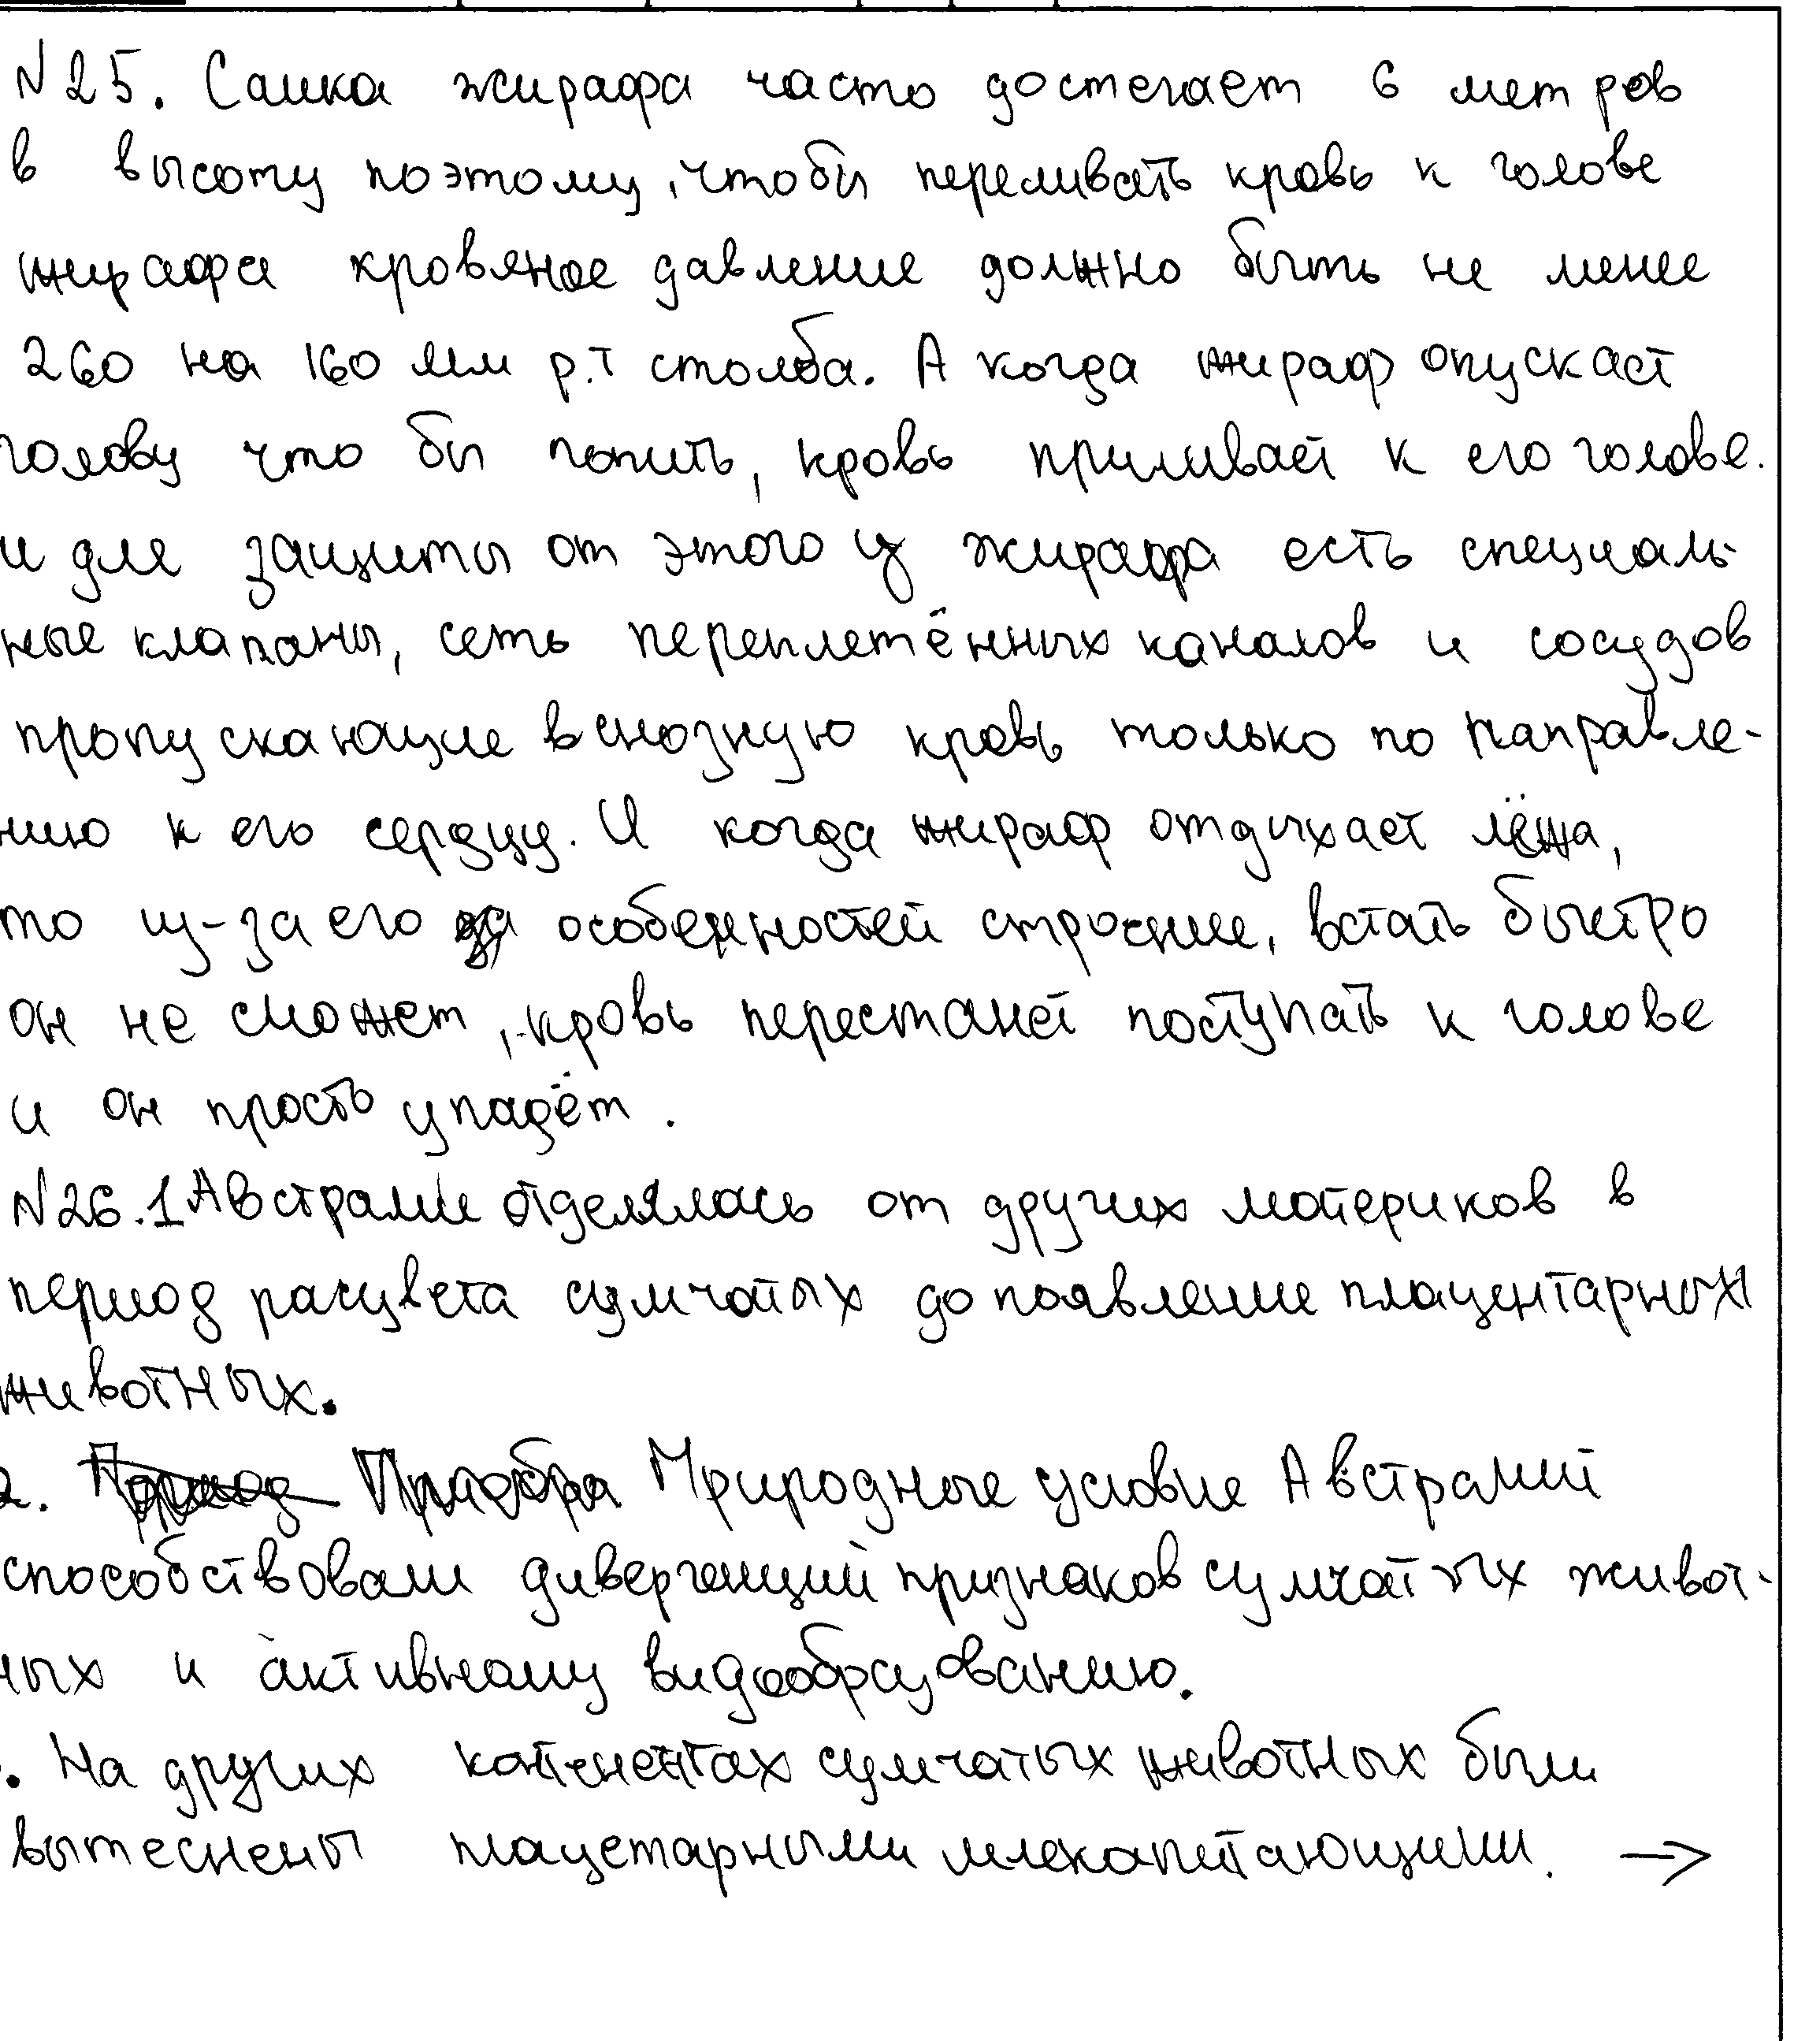 N25. Самка жирафа часто достегает 6 метров
в высоту поэтому, чтобы переливать кровь к голове
жирафа кровяное давление должно быть не менее
260 на 160 мм р.т столба. А когда жираф опускает
голову что бы попить, кровь приливает к его голове.
и для защиты от этого у жирафа есть специаль-
ные клапаны, сеть переплетённых каналов и сосудов
пропускающие венозную кровь только по направле-
нию к его сердцу. И когда жираф отдыхает лёжа,
то из-за его особенностей строение, встать быстро
он не сможет, кровь перестанет поступать к голове
и он просто упадёт.
N26.1 Австралие отделялась от других материков в
период расцвета сумчатых до появление плацентарных
животных.
2. Природные условие Австралий
способствовали дивергенций признаков сумчатых живот-
ных и активному видообразованию.
. На других континентах сумчатых животных были
вытеснены плацетарными млекопитающими. →